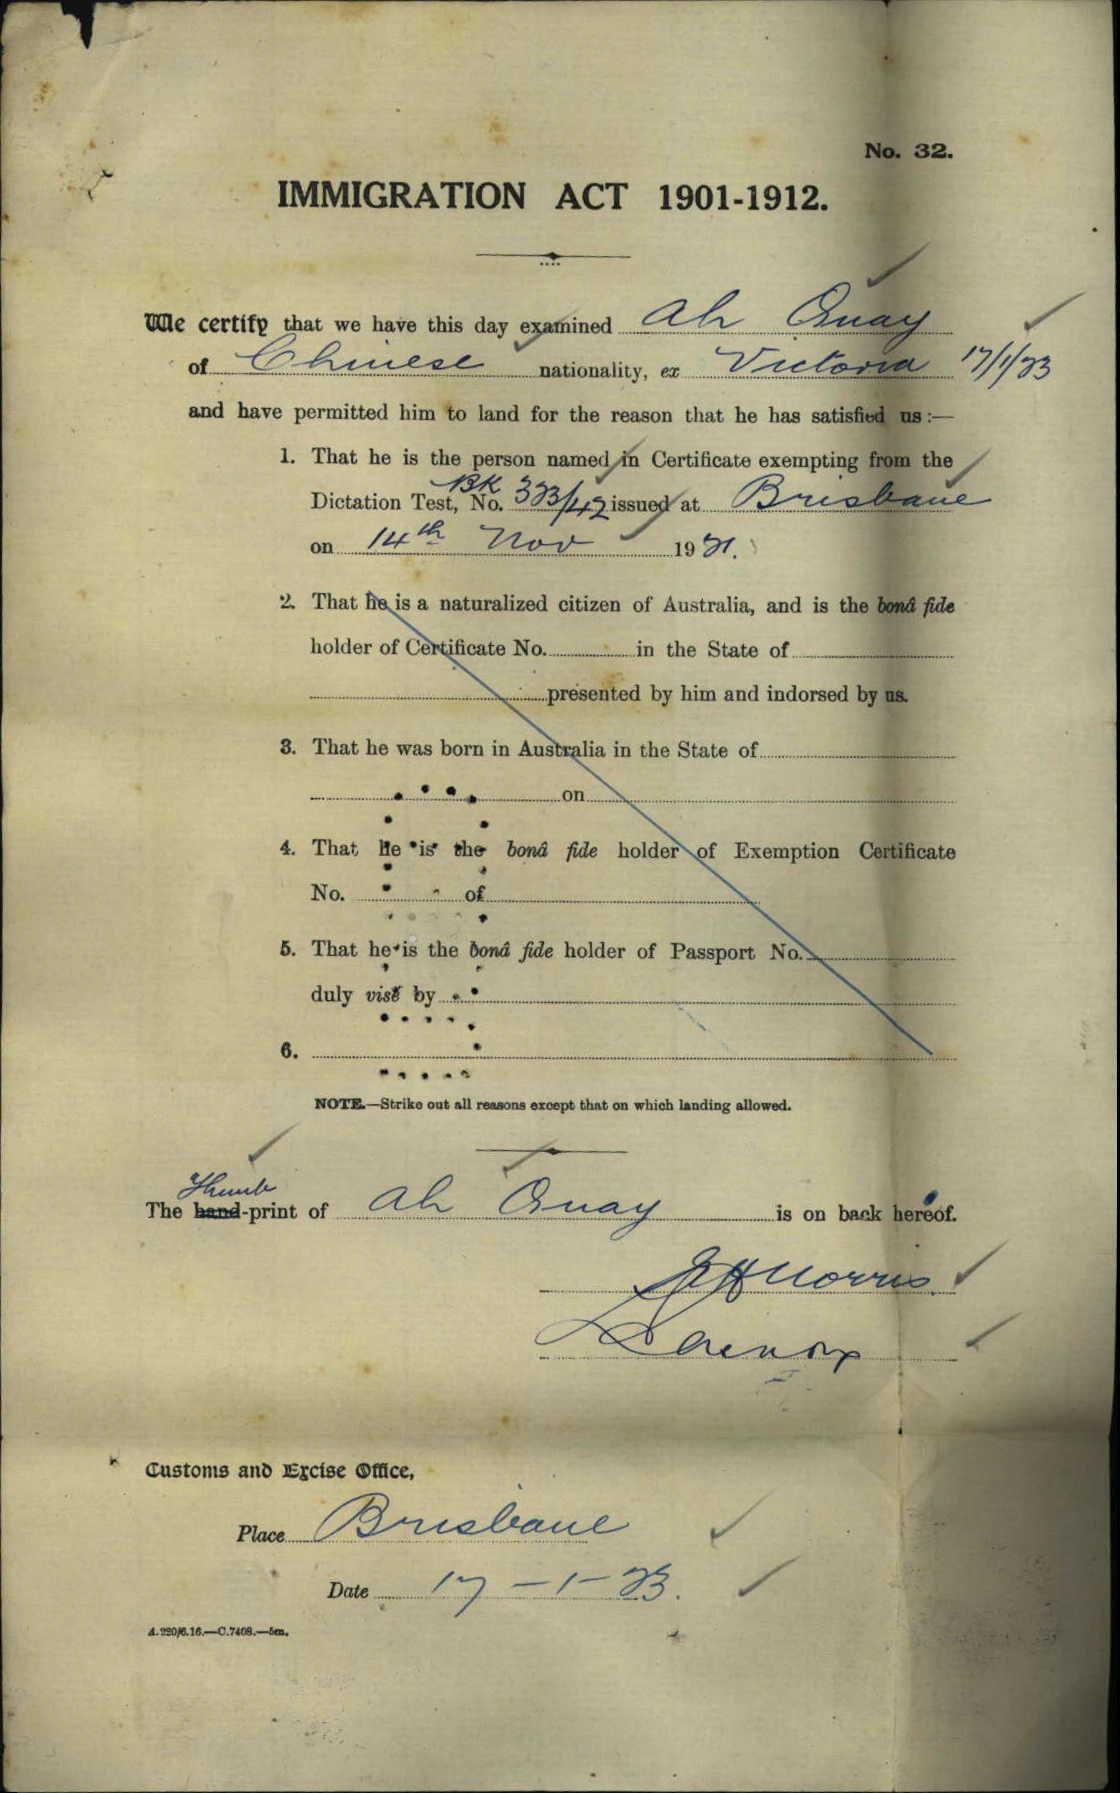 No. 32.
IMMIGRATION ACT 1901-1912.
We certify that we have this day examined Ah Quay
of Chinese nationality, ex Victoria 17/1/23
and have permitted him to land for the reason that he has satisfied us:—
1. That he is the person named in Certificate exempting from the
Dictation Test, BK No. 323/42 issued at Brisbane
on 14th Nov 1921.
2. That he is a naturalized citizen of Australia, and is the bonâ fide
holder of Certificate No. in the State of
presented by him and indorsed by us.
3. That he was born in Australia in the State of
on
4. That he is the bonâ fide holder of Exemption Certificate
No. of
5. That he is the bonâ fide holder of Passport No.
duly visé by
6.
NOTE.—Strike out all reasons except that on which landing allowed.
Thumb
The hand-print of Ah Quay is on back hereof.
Morris
Lennox
Customs and Excise Office,
Place Brisbane
Date 17-1-23.
A.220/6.16.—C.7408.—5m.